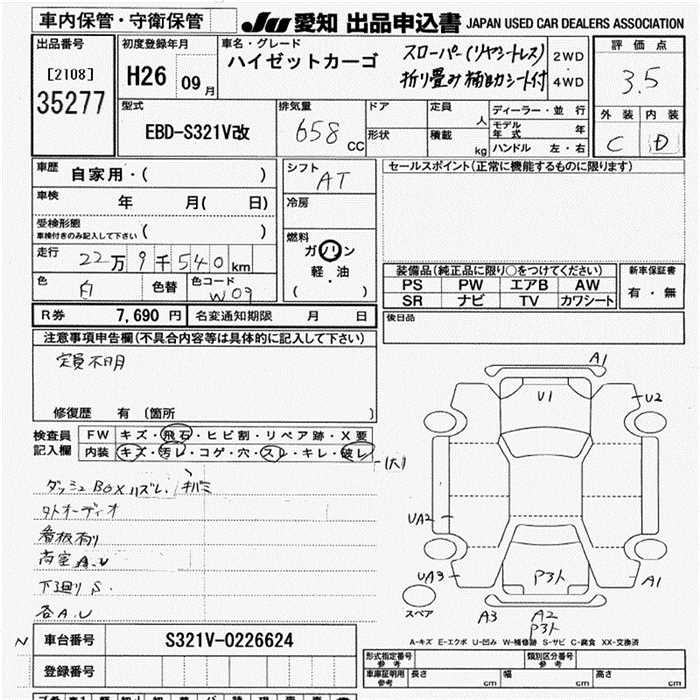 車内保管・守衛保管
JU 愛知 出品申込書 JAPAN USED CAR DEALERS ASSOCIATION
出品番号
[2108]
35277
初度登録年月
H26 09月
車名・グレード
ハイゼットカーゴ
スローパー(リヤシートレス)
折り畳み補助シート付
2WD
4WD
評価点
3.5
外装 内装
C D
型式
EBD-S321V改
排気量
658 CC
ドア
形状
定員 人
積載 kg
ディーラー・並行
モデル年式 年
ハンドル 左・右
車歴 自家用・( )
車検 年 月( 日)
受検形態
車検付きのみ記入して下さい ( )
走行 22万9千540km
色 白 色替 色コード W09
シフト AT
冷房
燃料
ガソリン
軽・油
( )
セールスポイント(正常に機能するものに限ります)
装備品(純正品に限り○をつけてください)
PS PW エアB AW
SR ナビ TV カワシート
新車保証書
有・無
後日品
R券 7,690円 名変通知期限 月 日
注意事項申告欄(不具合内容等は具体的に記入して下さい)
定員不明
修復歴 有(箇所 )
検査員記入欄
FW キズ・飛石・ヒビ割・リペア跡・X要
内装 キズ・汚レ・コゲ・穴・スレ・キレ・破レ
(大)
ダッシュBOXハズレ、キバミ
社外オーディオ
看板有り
荷室A.U
下廻りS.
各A.U
A1
U1
U2
UA2
UA3
P3ト
A1
A3
A2
P3
スペア
A-キズ E-エクボ U-凹み W-補修跡 S-サビ C-腐食 XX-交換済
N
車台番号 S321V-0226624
登録番号
形式指定番号 参考
類別区分番号 参考
車庫証明用 参考
長さ cm 幅 cm 高さ cm